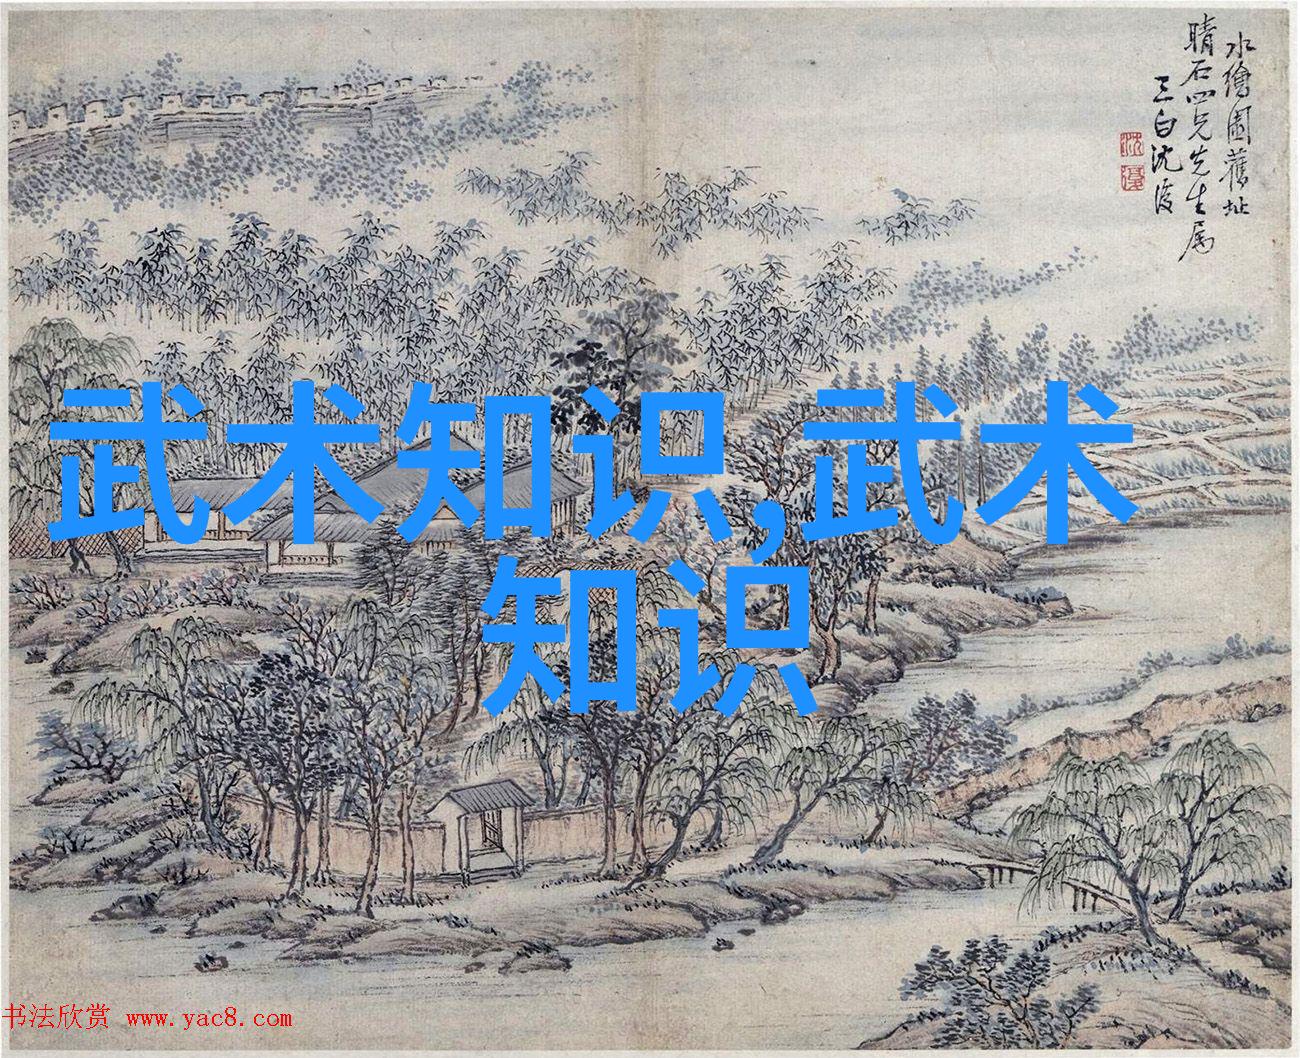 水繪園舊址
晴石四兄先生属
三白沈復
沈
復
武术知识,武术
知识
书法欣赏 www.yac8.com